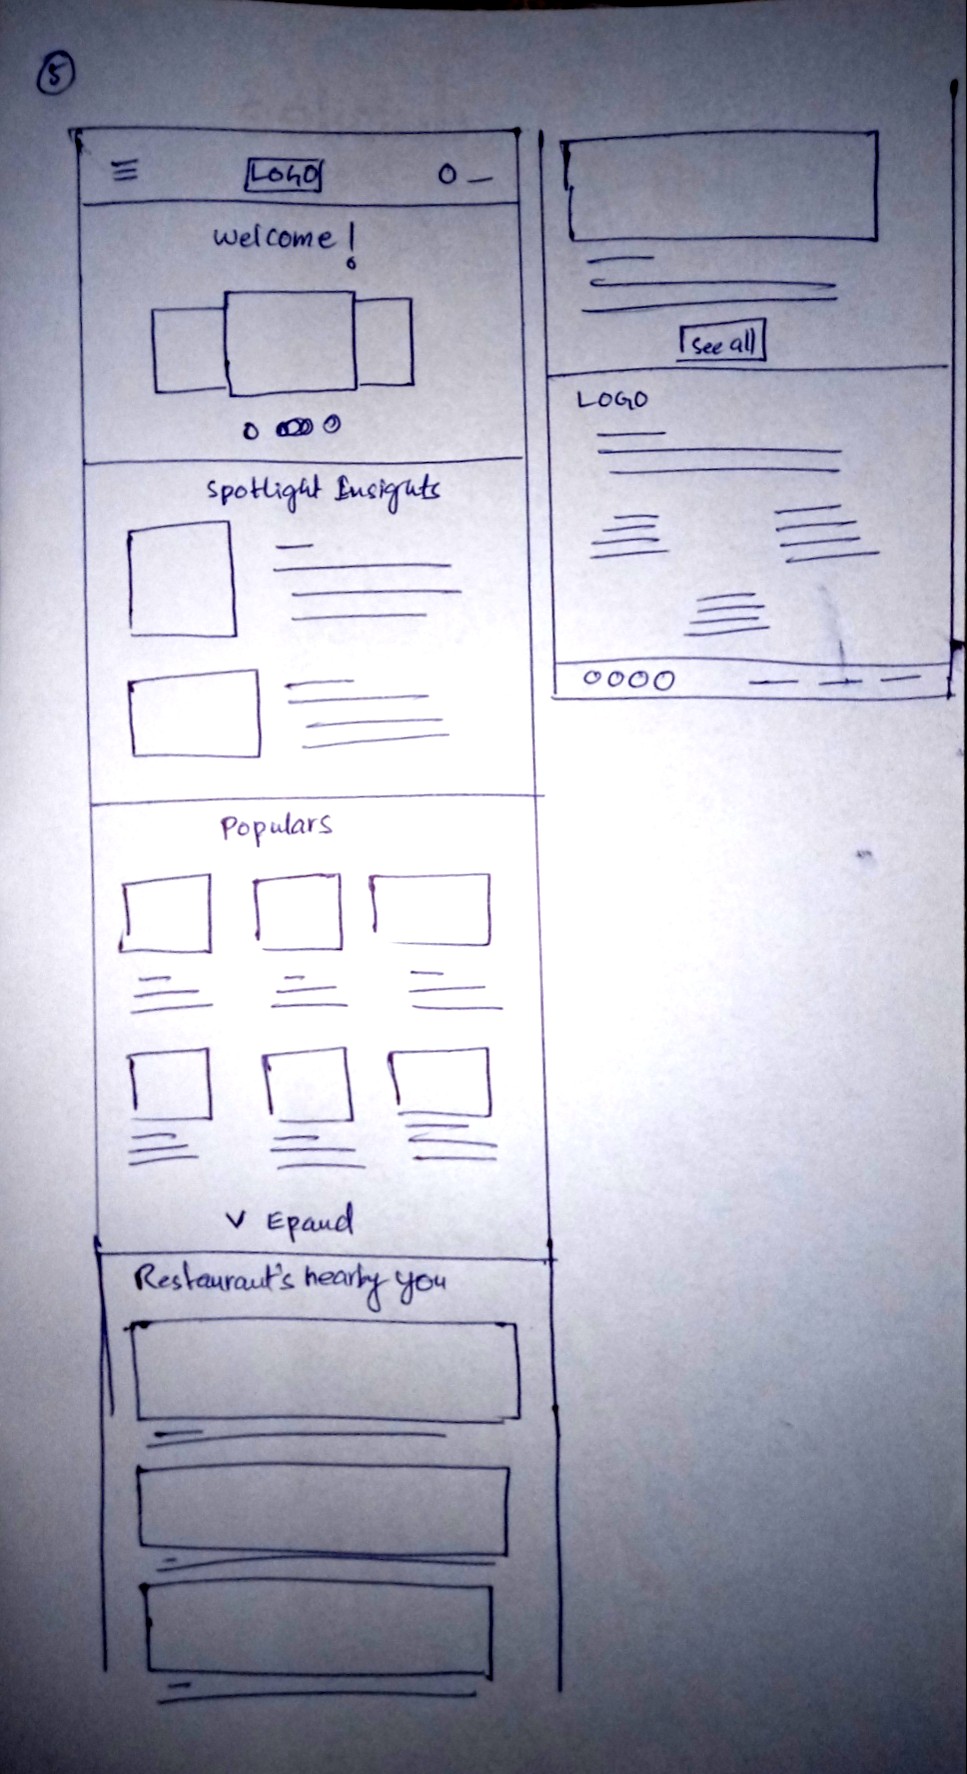 5
LOGO
Welcome!
Spotlight Insights
Populars
V Epand
Restaurant's nearby you
See all
LOGO